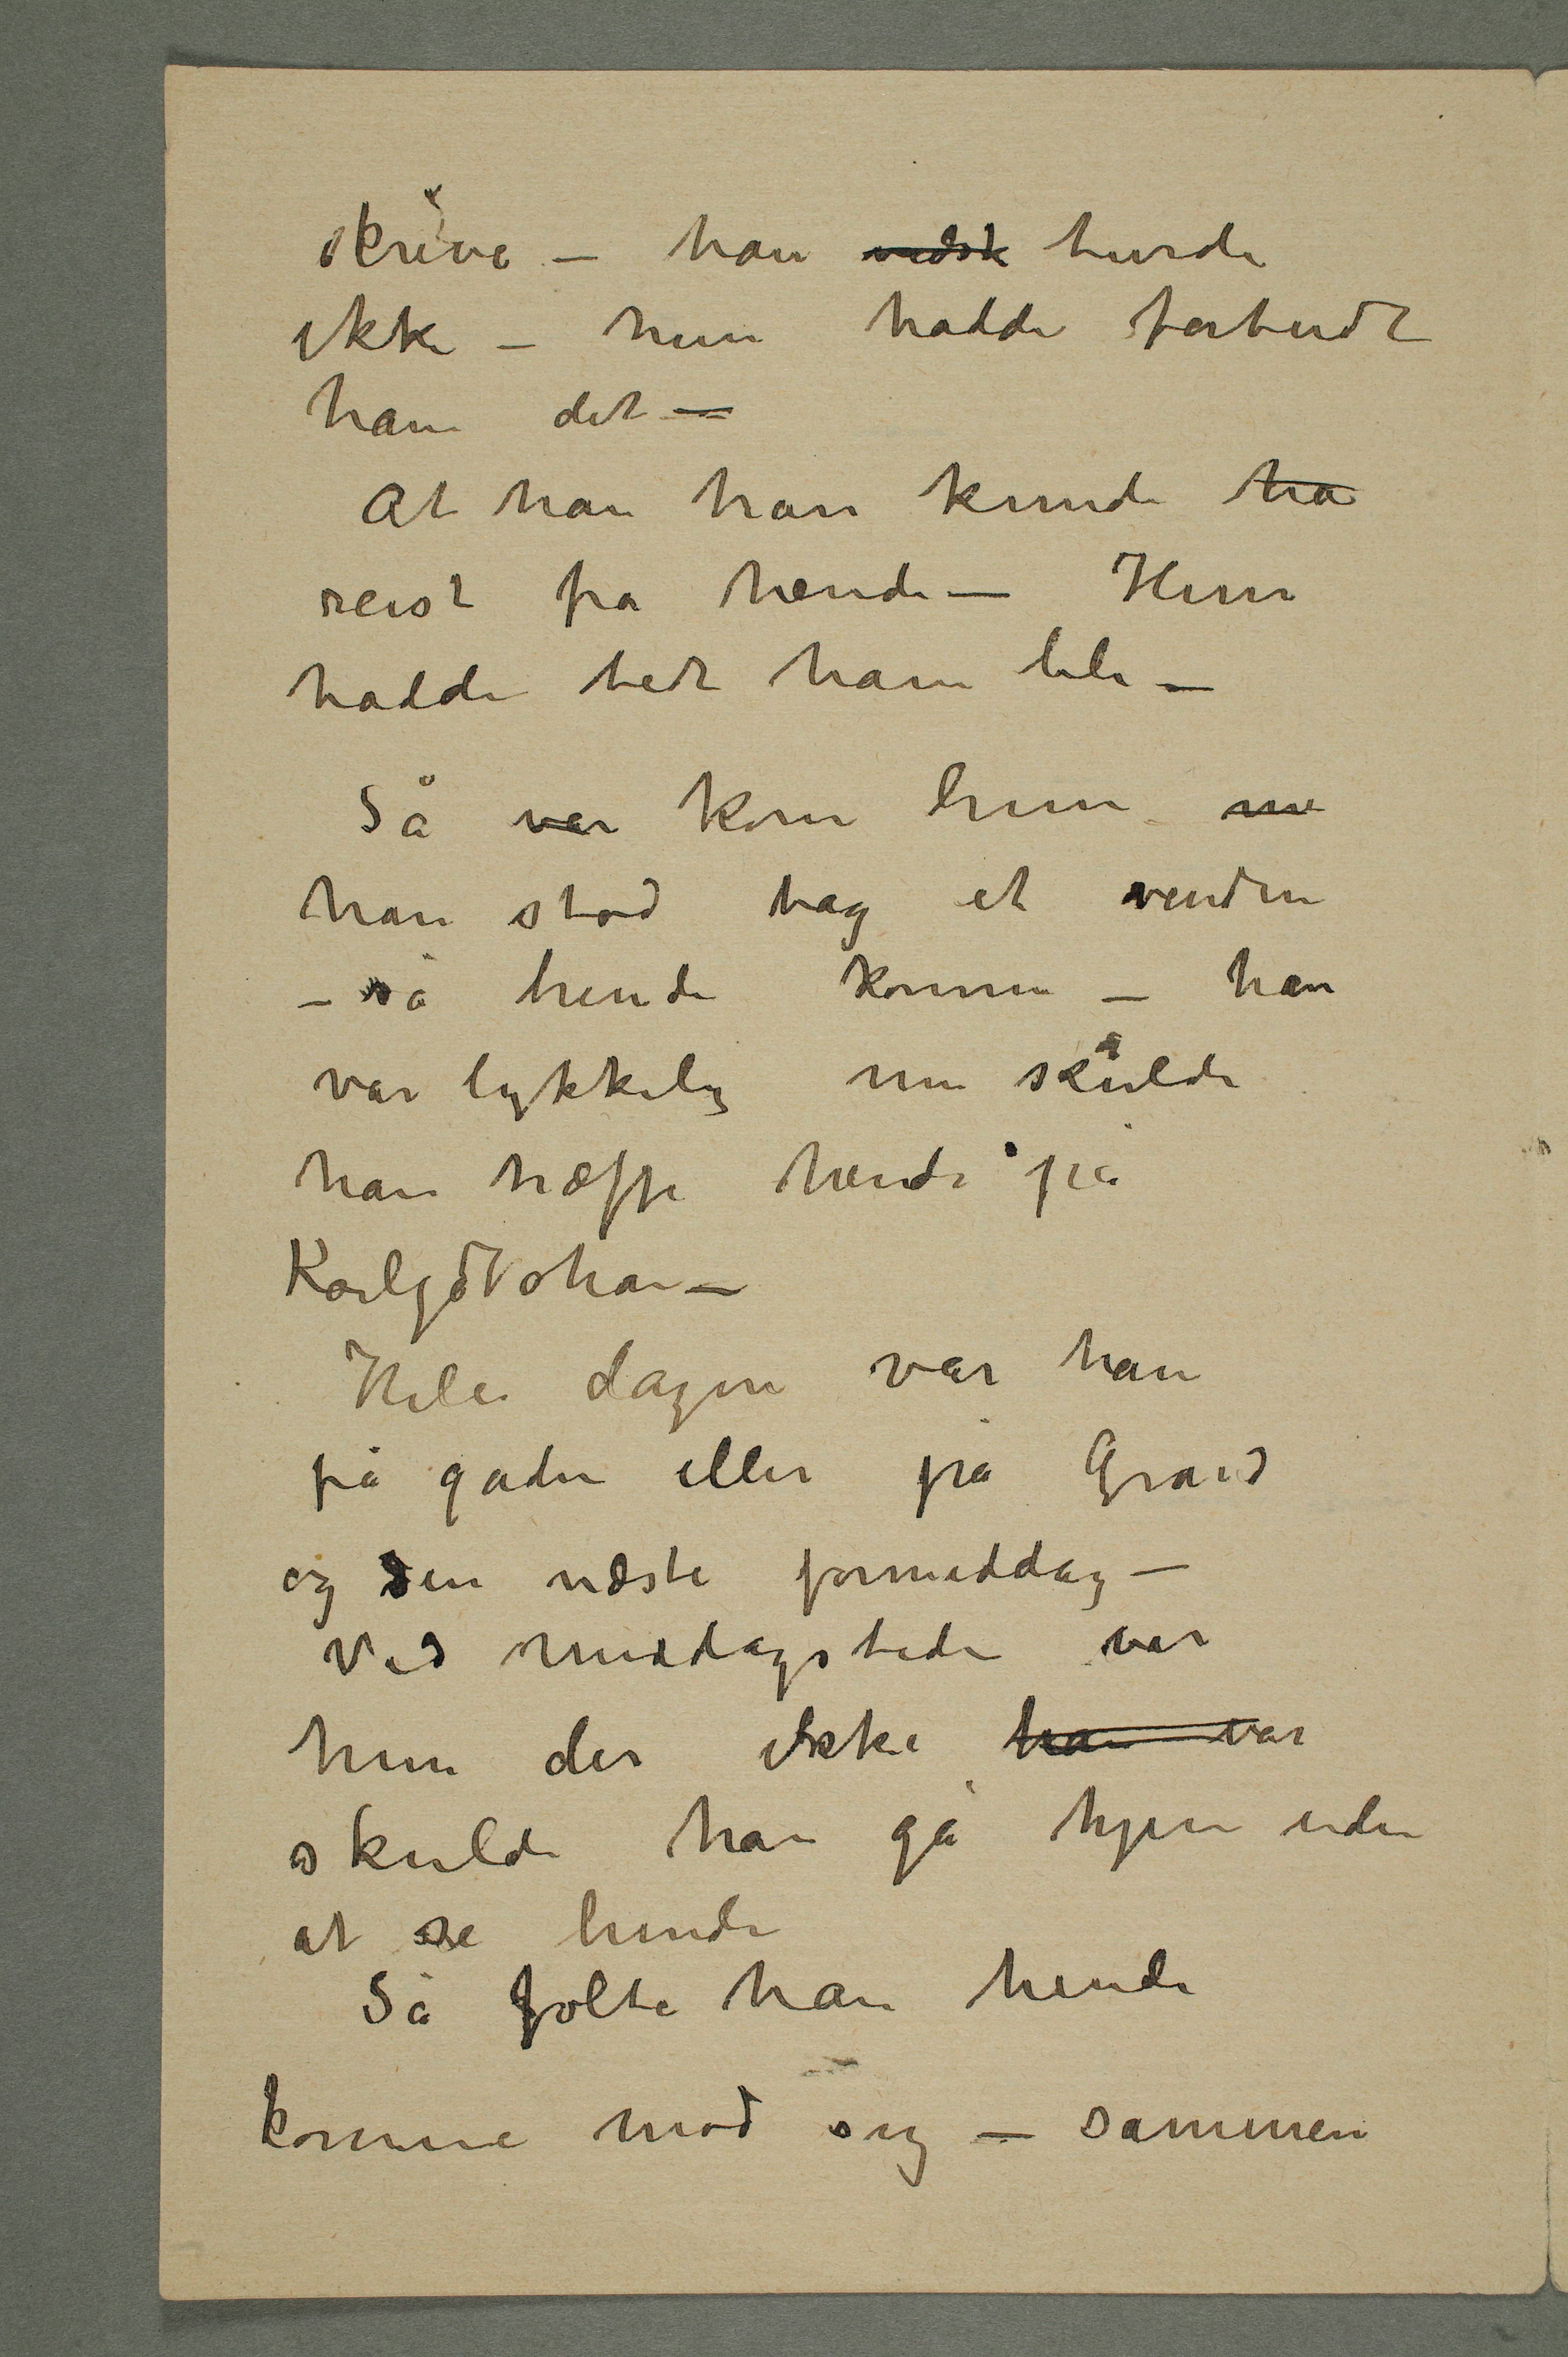 skrive – han turde
ikke – hun hadde forbudt
ham det –
At han han kunde ha
reist fra hende – Hun
hadde bedt ham bli –
Så var kom hun
han stod bag et vindu
– så hende komme – han
var lykkelig nu skulde
han træffe hende på
Karl Johan –
Hele dagen var han
på gaden eller på Grand
og den næste formiddag –
Ved middagstide var
hun der ikke han var
skulde han gå hjem uden
at se hende
Så følte han hende
komme mod sig – sammen